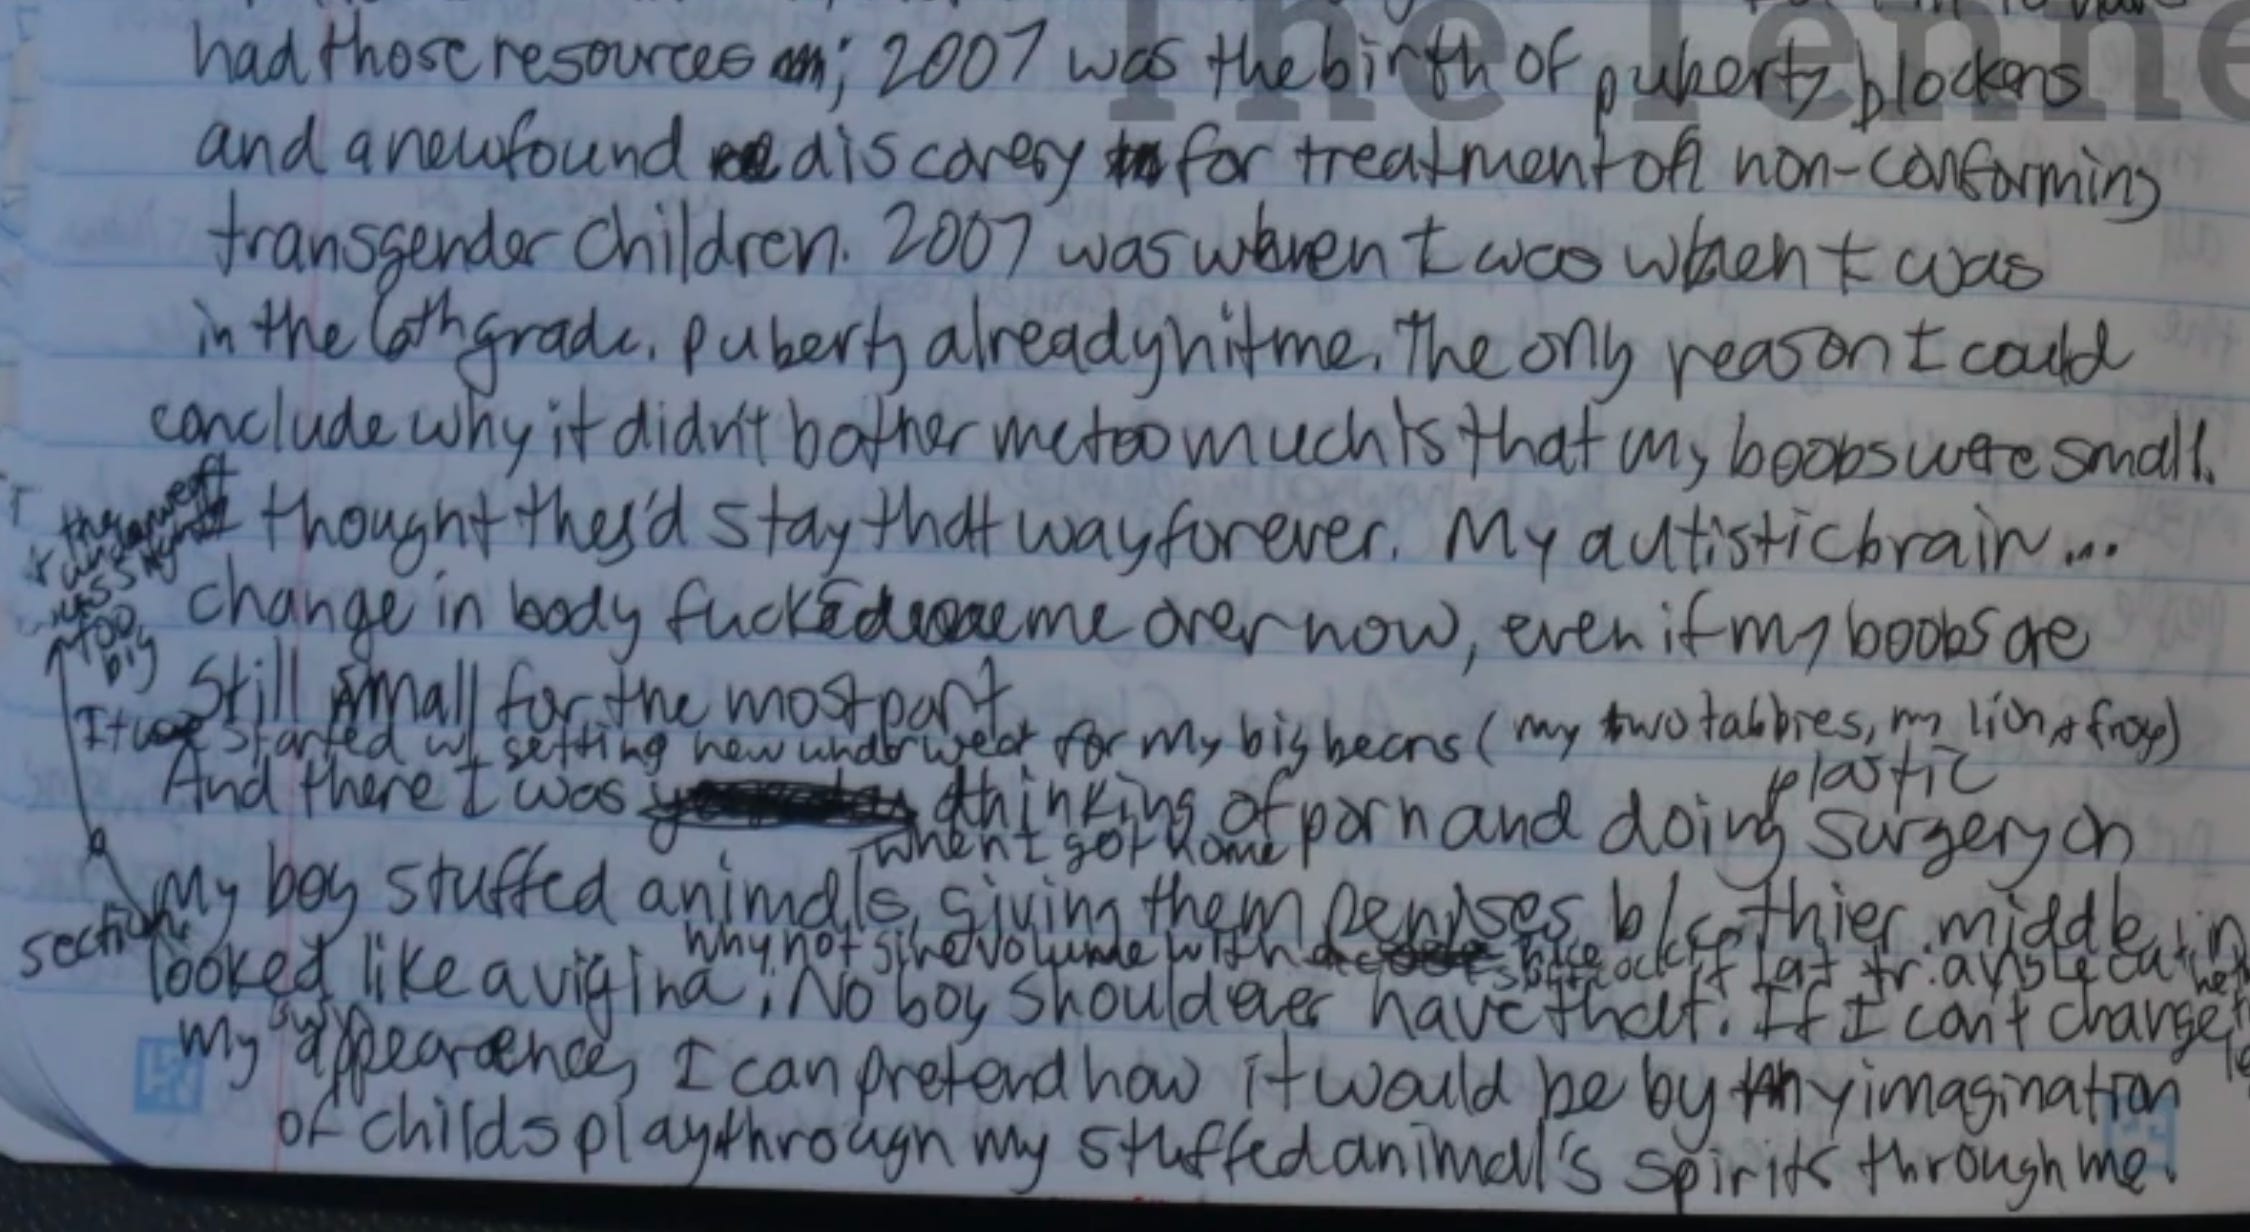 The Tenne
had those resources; 2007 was the birth of puberty blockers
and a newfound discovery for treatment of non-conforming
transgender children. 2007 was when I was when I was
in the 6th grade. puberty already hit me. The only reason I could
conclude why it didn't bother me too much is that my boobs were small.
I thought they'd stay that way forever. My autistic brain...
change in body fucked me over now, even if my boobs are
still small for the most part
the underwear
was
too
big
It started w/ getting new underwear for my big bears (my two tabbies, my lion & frog)
And there I was thinking of porn and doing plastic surgery on
when I got home
my boy stuffed animals, giving them penises b/c thier middle
section
looked like a vigina; No boy should ever have that. If I can't change
why not give volume with nice flat triangle cut in
my appearence, I can pretend how it would be by my imagination
of childs play through my stuffed animal's spirits through me.